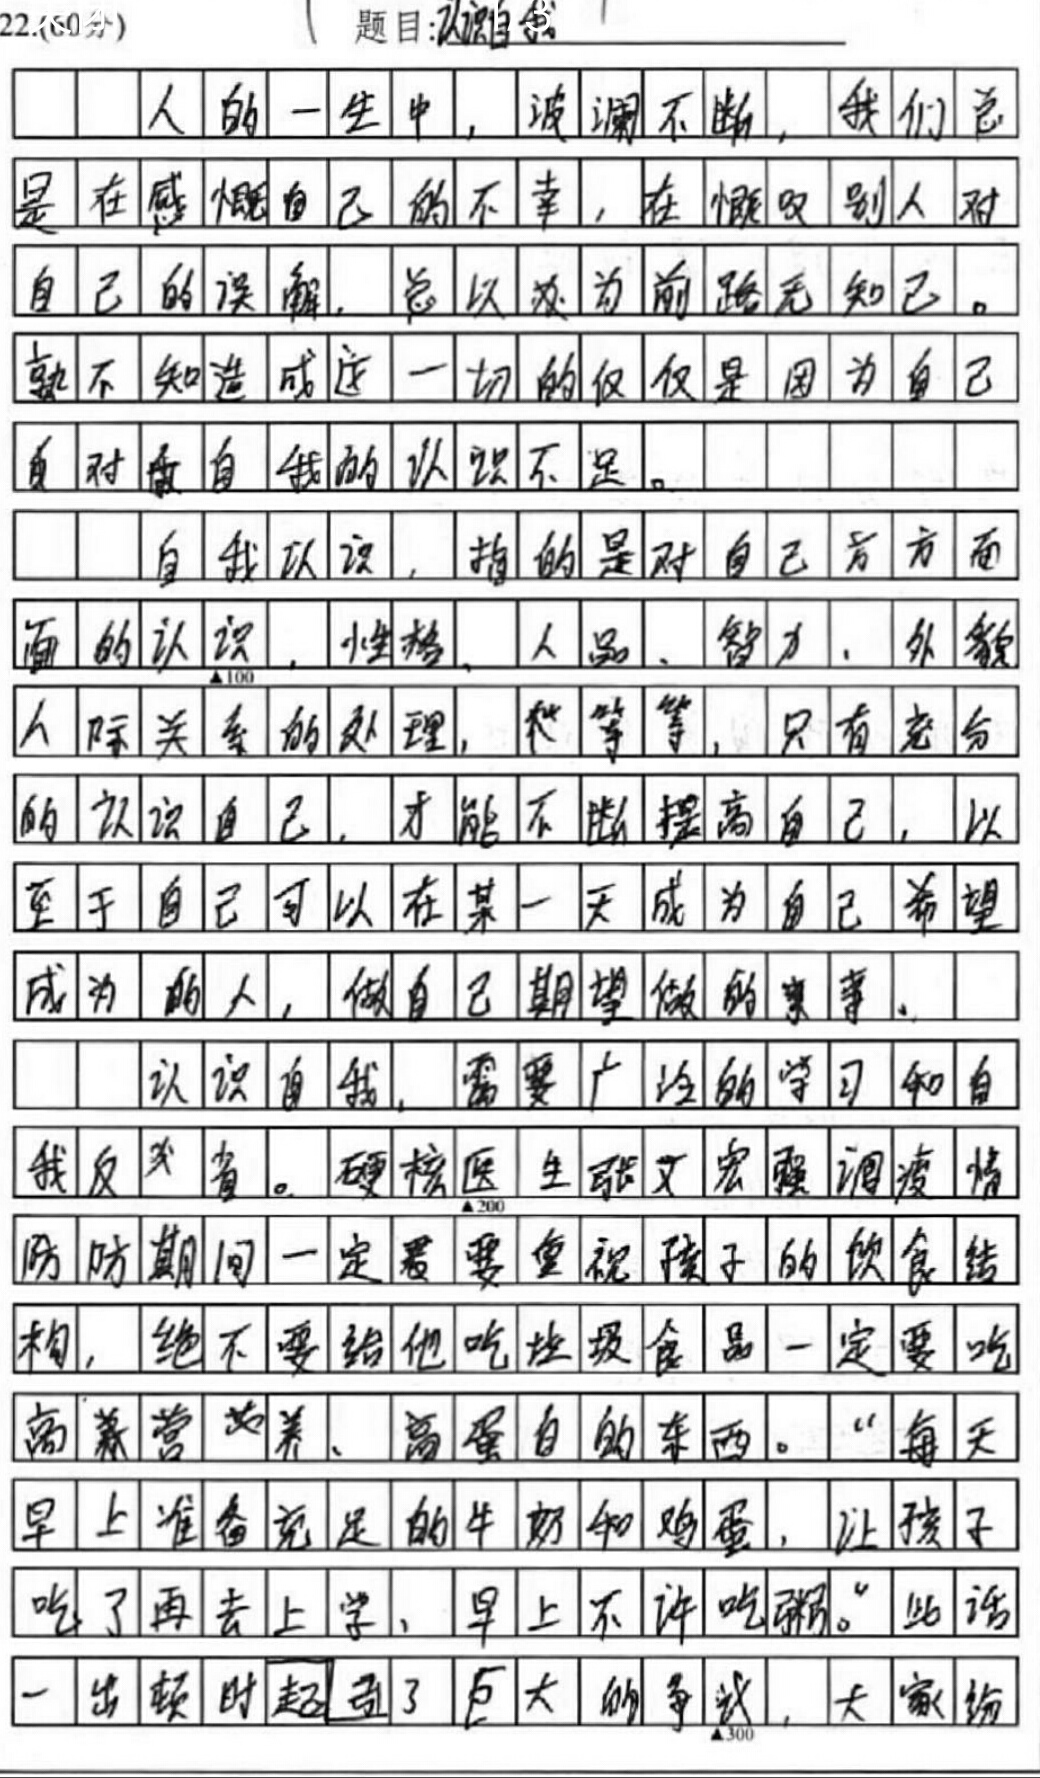 22.(60分) 题目:认识自我
人的一生中，波澜不断，我们总
是在感慨自己的不幸，在慨叹别人对
自己的误解，总以为前路无知己。
孰不知造成这一切的仅仅是因为自己
对自我的认识不足。
自我认识，指的是对自己方方面
面的认识，性格、人品、智力、外貌
人际关系的处理，等等，只有充分
的认识自己，才能不断提高自己，以
至于自己可以在某一天成为自己希望
成为的人，做自己期望做的事。
认识自我，需要广泛的学习和自
我反省。硬核医生张文宏强调疫情
防期间一定要重视孩子的饮食结
构，绝不要给他吃垃圾食品一定要吃
高营养、高蛋白的东西。“每天
早上准备充足的牛奶和鸡蛋，让孩子
吃了再去上学、早上不许吃粥。”此话
▲100
▲200
一出顿时起引了巨大的争议，大家纷
▲300